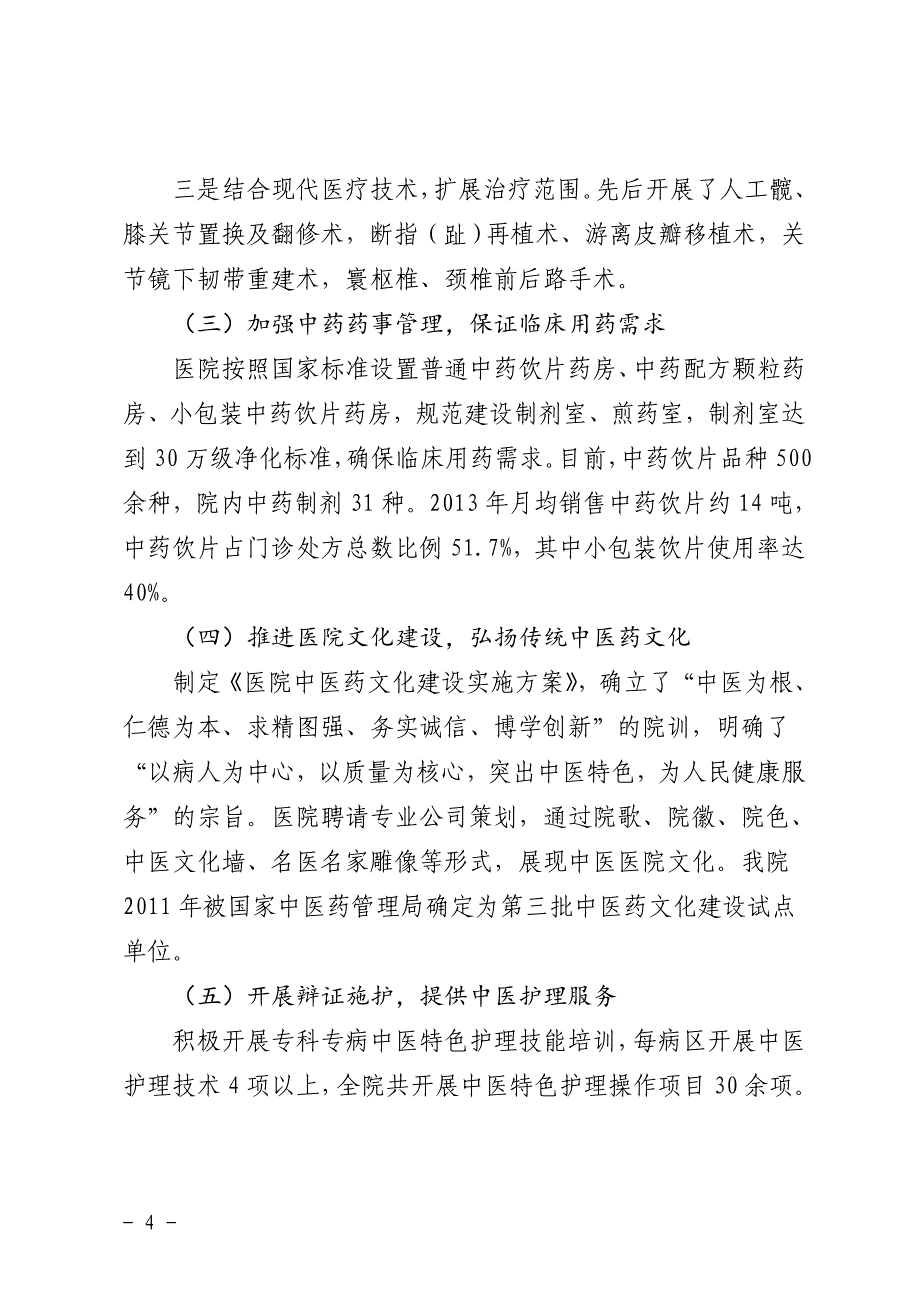 三是结合现代医疗技术，扩展治疗范围。先后开展了人工髋、
膝关节置换及翻修术，断指（趾）再植术、游离皮瓣移植术，关
节镜下韧带重建术，寰枢椎、颈椎前后路手术。
（三）加强中药药事管理，保证临床用药需求
医院按照国家标准设置普通中药饮片药房、中药配方颗粒药
房、小包装中药饮片药房，规范建设制剂室、煎药室，制剂室达
到 30 万级净化标准，确保临床用药需求。目前，中药饮片品种 500
余种，院内中药制剂 31 种。2013 年月均销售中药饮片约 14 吨，
中药饮片占门诊处方总数比例 51.7%，其中小包装饮片使用率达
40%。
（四）推进医院文化建设，弘扬传统中医药文化
制定《医院中医药文化建设实施方案》，确立了“中医为根、
仁德为本、求精图强、务实诚信、博学创新”的院训，明确了
“以病人为中心，以质量为核心，突出中医特色，为人民健康服
务”的宗旨。医院聘请专业公司策划，通过院歌、院徽、院色、
中医文化墙、名医名家雕像等形式，展现中医医院文化。我院
2011 年被国家中医药管理局确定为第三批中医药文化建设试点
单位。
（五）开展辩证施护，提供中医护理服务
积极开展专科专病中医特色护理技能培训，每病区开展中医
护理技术 4 项以上，全院共开展中医特色护理操作项目 30 余项。
－ 4 －